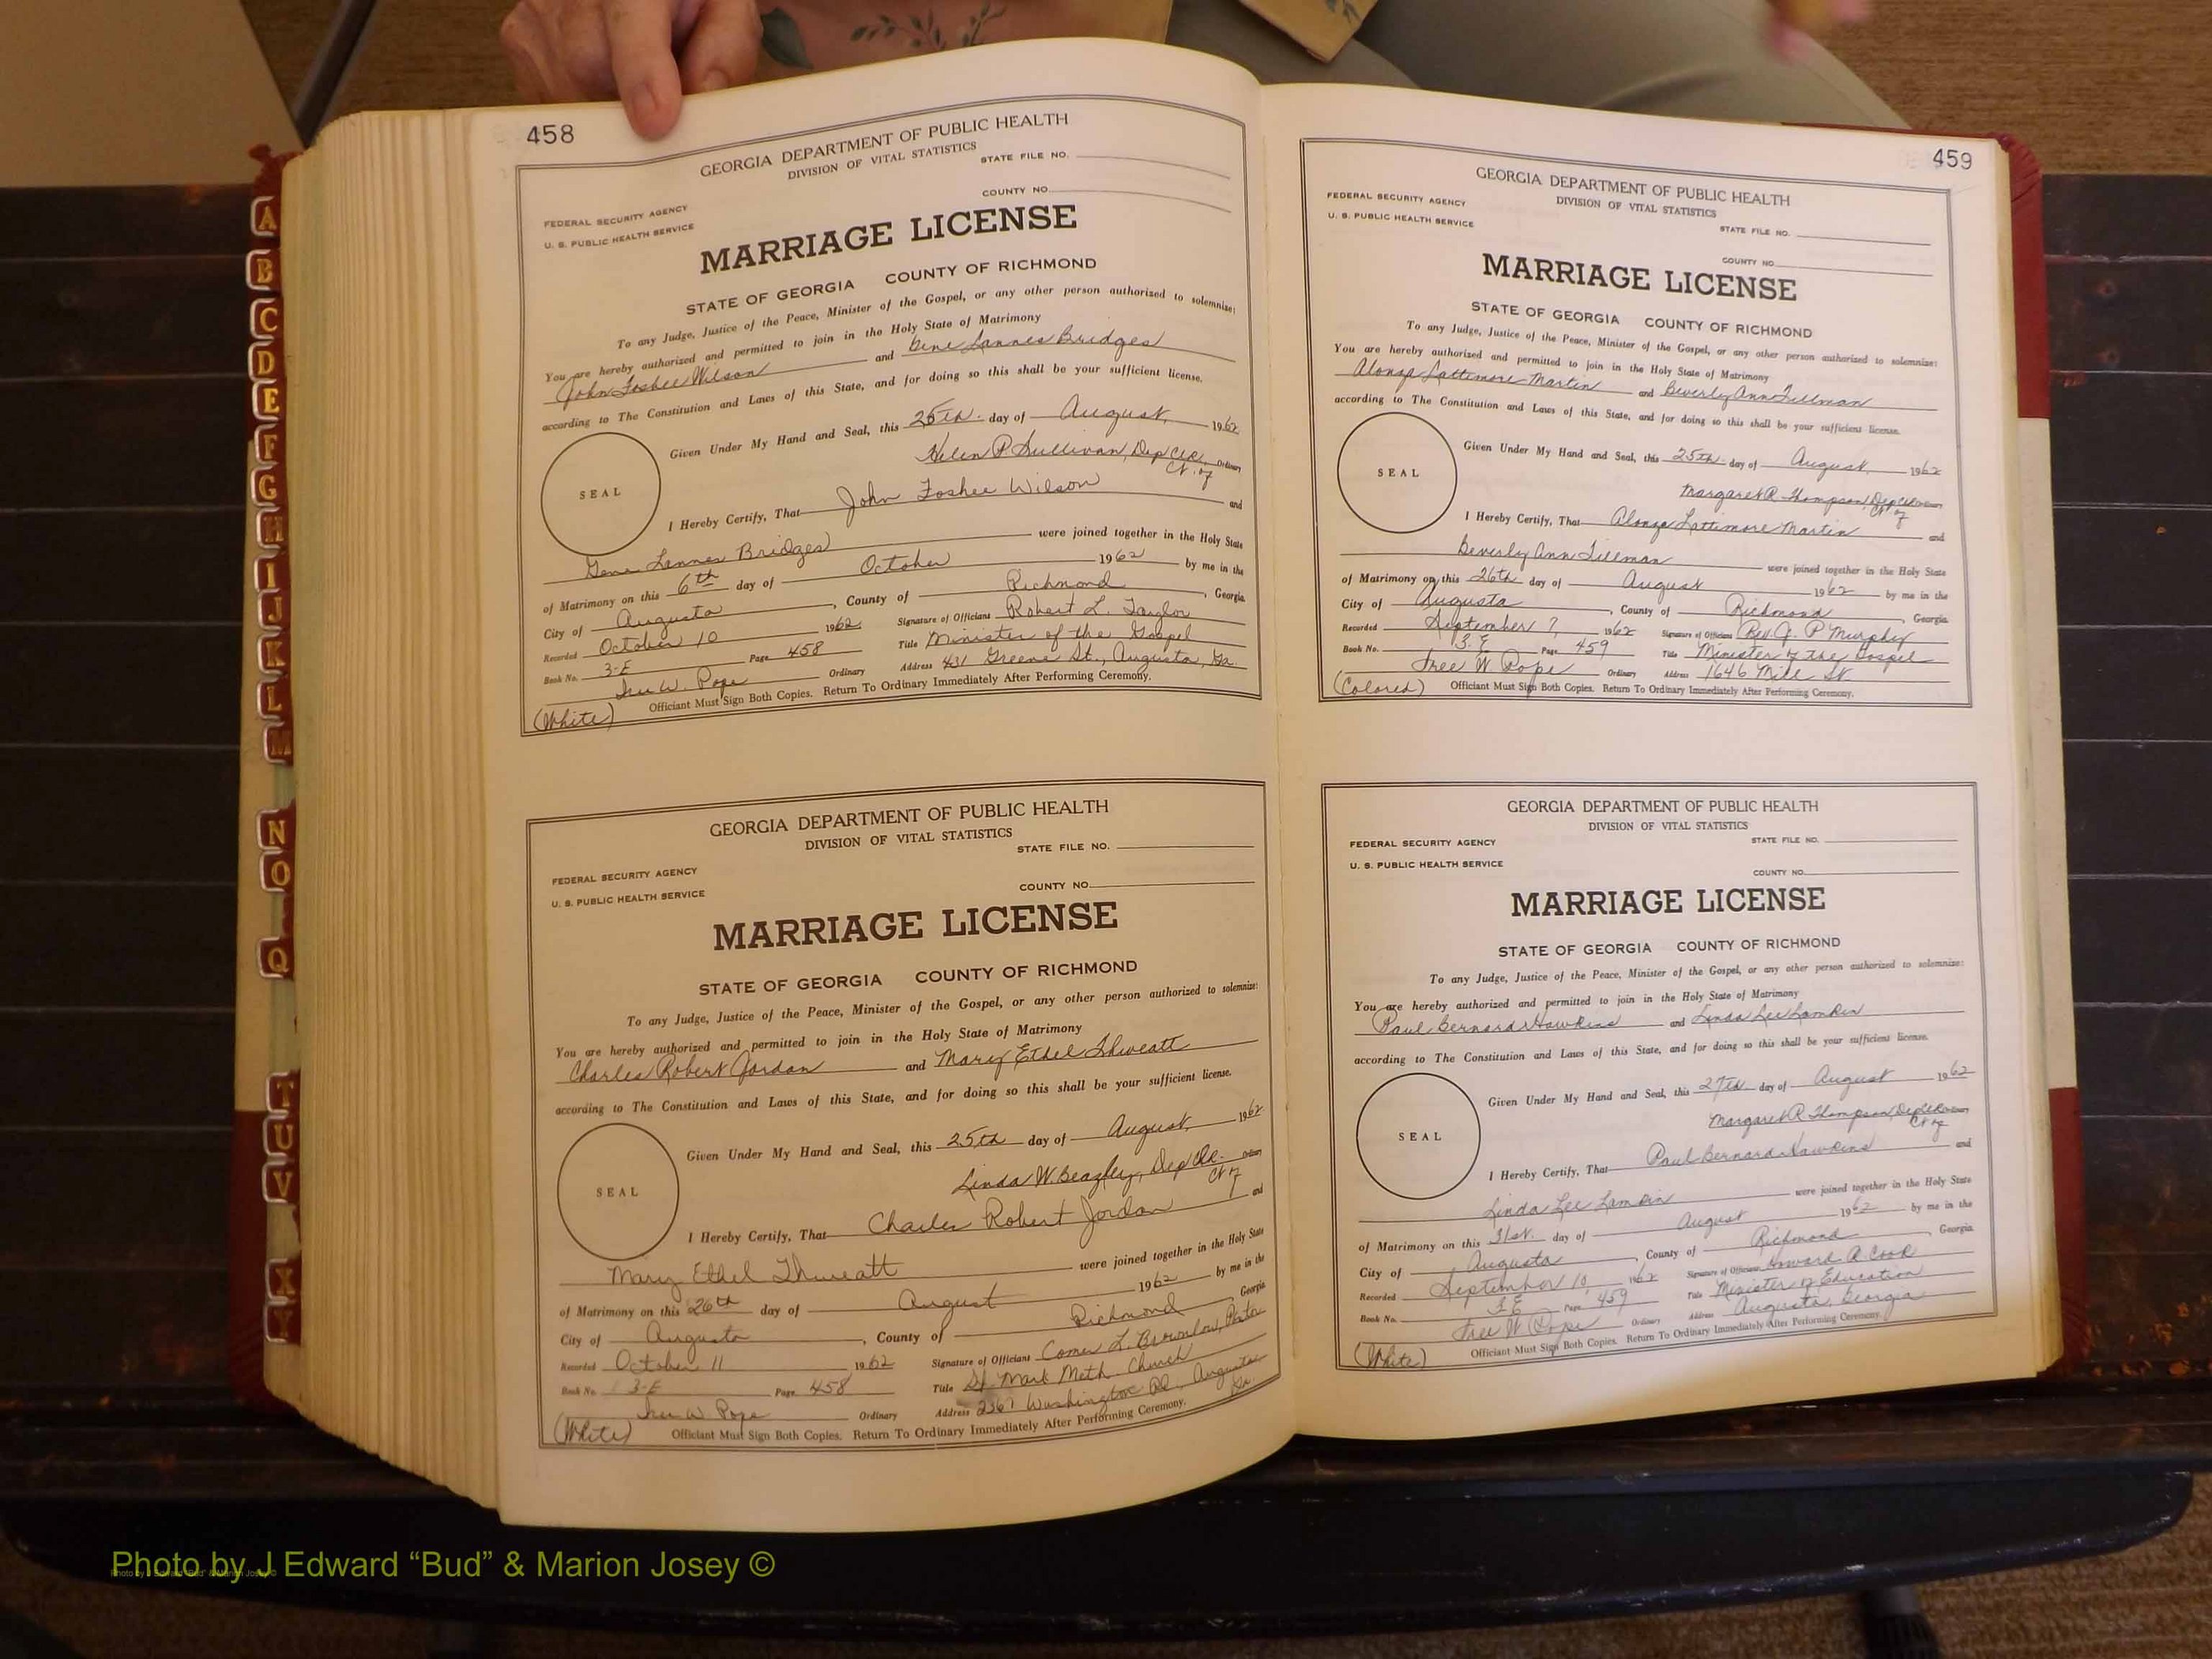 458
GEORGIA DEPARTMENT OF PUBLIC HEALTH
DIVISION OF VITAL STATISTICS
STATE FILE NO.
COUNTY NO.
FEDERAL SECURITY AGENCY
U. S. PUBLIC HEALTH SERVICE
MARRIAGE LICENSE
STATE OF GEORGIA COUNTY OF RICHMOND
To any Judge, Justice of the Peace, Minister of the Gospel, or any other person authorized to solemnize:
You are hereby authorized and permitted to join in the Holy State of Matrimony
John Foshee Wilson and Gene Lannes Bridges
according to The Constitution and Laws of this State, and for doing so this shall be your sufficient license.
Given Under My Hand and Seal, this 25th day of August, 1962
Helen P Sullivan, Dep Clk. Ordinary
Ct. of
SEAL
I Hereby Certify, That John Foshee Wilson and
Gene Lannes Bridges were joined together in the Holy State
of Matrimony on this 6th day of October 1962 by me in the
City of Augusta, County of Richmond, Georgia.
Recorded October 10 1962 Signature of Officiant Robert L. Taylor
Book No. 3-E Page 458 Title Minister of the Gospel
W. Pope Ordinary Address 431 Greene St., Augusta, Ga.
(White) Officiant Must Sign Both Copies. Return To Ordinary Immediately After Performing Ceremony.
GEORGIA DEPARTMENT OF PUBLIC HEALTH
DIVISION OF VITAL STATISTICS
STATE FILE NO.
COUNTY NO.
FEDERAL SECURITY AGENCY
U. S. PUBLIC HEALTH SERVICE
MARRIAGE LICENSE
STATE OF GEORGIA COUNTY OF RICHMOND
To any Judge, Justice of the Peace, Minister of the Gospel, or any other person authorized to solemnize:
You are hereby authorized and permitted to join in the Holy State of Matrimony
Charles Robert Jordan and Mary Ethel Thweatt
according to The Constitution and Laws of this State, and for doing so this shall be your sufficient license.
Given Under My Hand and Seal, this 25th day of August, 1962
Linda W. Beazley, Dep Clk. Ordinary
Ct of
SEAL
I Hereby Certify, That Charles Robert Jordan and
Mary Ethel Thweatt were joined together in the Holy State
of Matrimony on this 26th day of August 1962 by me in the
City of Augusta, County of Richmond Georgia
Recorded October 11 1962 Signature of Officiant Comer L. Brownlow, Pastor
Book No. 3-E Page 458 Title St. Mark Meth. Church
W. Pope Ordinary Address 2367 Washington Rd., Augusta
Ga.
(White) Officiant Must Sign Both Copies. Return To Ordinary Immediately After Performing Ceremony.
459
GEORGIA DEPARTMENT OF PUBLIC HEALTH
DIVISION OF VITAL STATISTICS
STATE FILE NO.
COUNTY NO.
FEDERAL SECURITY AGENCY
U. S. PUBLIC HEALTH SERVICE
MARRIAGE LICENSE
STATE OF GEORGIA COUNTY OF RICHMOND
To any Judge, Justice of the Peace, Minister of the Gospel, or any other person authorized to solemnize:
You are hereby authorized and permitted to join in the Holy State of Matrimony
Alonza Lattimore Martin and Beverly Ann Tillman
according to The Constitution and Laws of this State, and for doing so this shall be your sufficient license.
Given Under My Hand and Seal, this 25th day of August 1962
Margaret R. Thompson, Dep Clk
Ct of
SEAL
I Hereby Certify, That Alonza Lattimore Martin and
Beverly Ann Tillman were joined together in the Holy State
of Matrimony on this 26th day of August 1962 by me in the
City of Augusta, County of Richmond, Georgia
Recorded September 7, 1962 Signature of Officiant Rev. J. P Murphy
Book No. 3-E Page 459 Title Minister of the Gospel
Tree W Pope Ordinary Address 1646 Mill St.
(Colored) Officiant Must Sign Both Copies. Return To Ordinary Immediately After Performing Ceremony.
GEORGIA DEPARTMENT OF PUBLIC HEALTH
DIVISION OF VITAL STATISTICS
STATE FILE NO.
COUNTY NO.
FEDERAL SECURITY AGENCY
U. S. PUBLIC HEALTH SERVICE
MARRIAGE LICENSE
STATE OF GEORGIA COUNTY OF RICHMOND
To any Judge, Justice of the Peace, Minister of the Gospel, or any other person authorized to solemnize:
You are hereby authorized and permitted to join in the Holy State of Matrimony
Paul Bernard Hawkins and Linda Lee Lamkin
according to The Constitution and Laws of this State, and for doing so this shall be your sufficient license.
Given Under My Hand and Seal, this 27th day of August 1962
Margaret R Thompson, Dep Clk
Ct of
SEAL
I Hereby Certify, That Paul Bernard Hawkins and
Linda Lee Lamkin were joined together in the Holy State
of Matrimony on this 31st. day of August 1962 by me in the
City of Augusta, County of Richmond, Georgia
Recorded September 10, 1962 Signature of Officiant Howard A. Cook
Book No. 3E Page 459 Title Minister of Education
Tree W Pope Ordinary Address Augusta, Georgia
(White) Officiant Must Sign Both Copies. Return To Ordinary Immediately After Performing Ceremony.
A
B
C
D
E
F
G
H
I
J
K
L
M
N
O
Q
T
U
V
X
Y
Photo by J Edward “Bud” & Marion Josey ©
Photo by J Edward “Bud” & Marion Josey ©